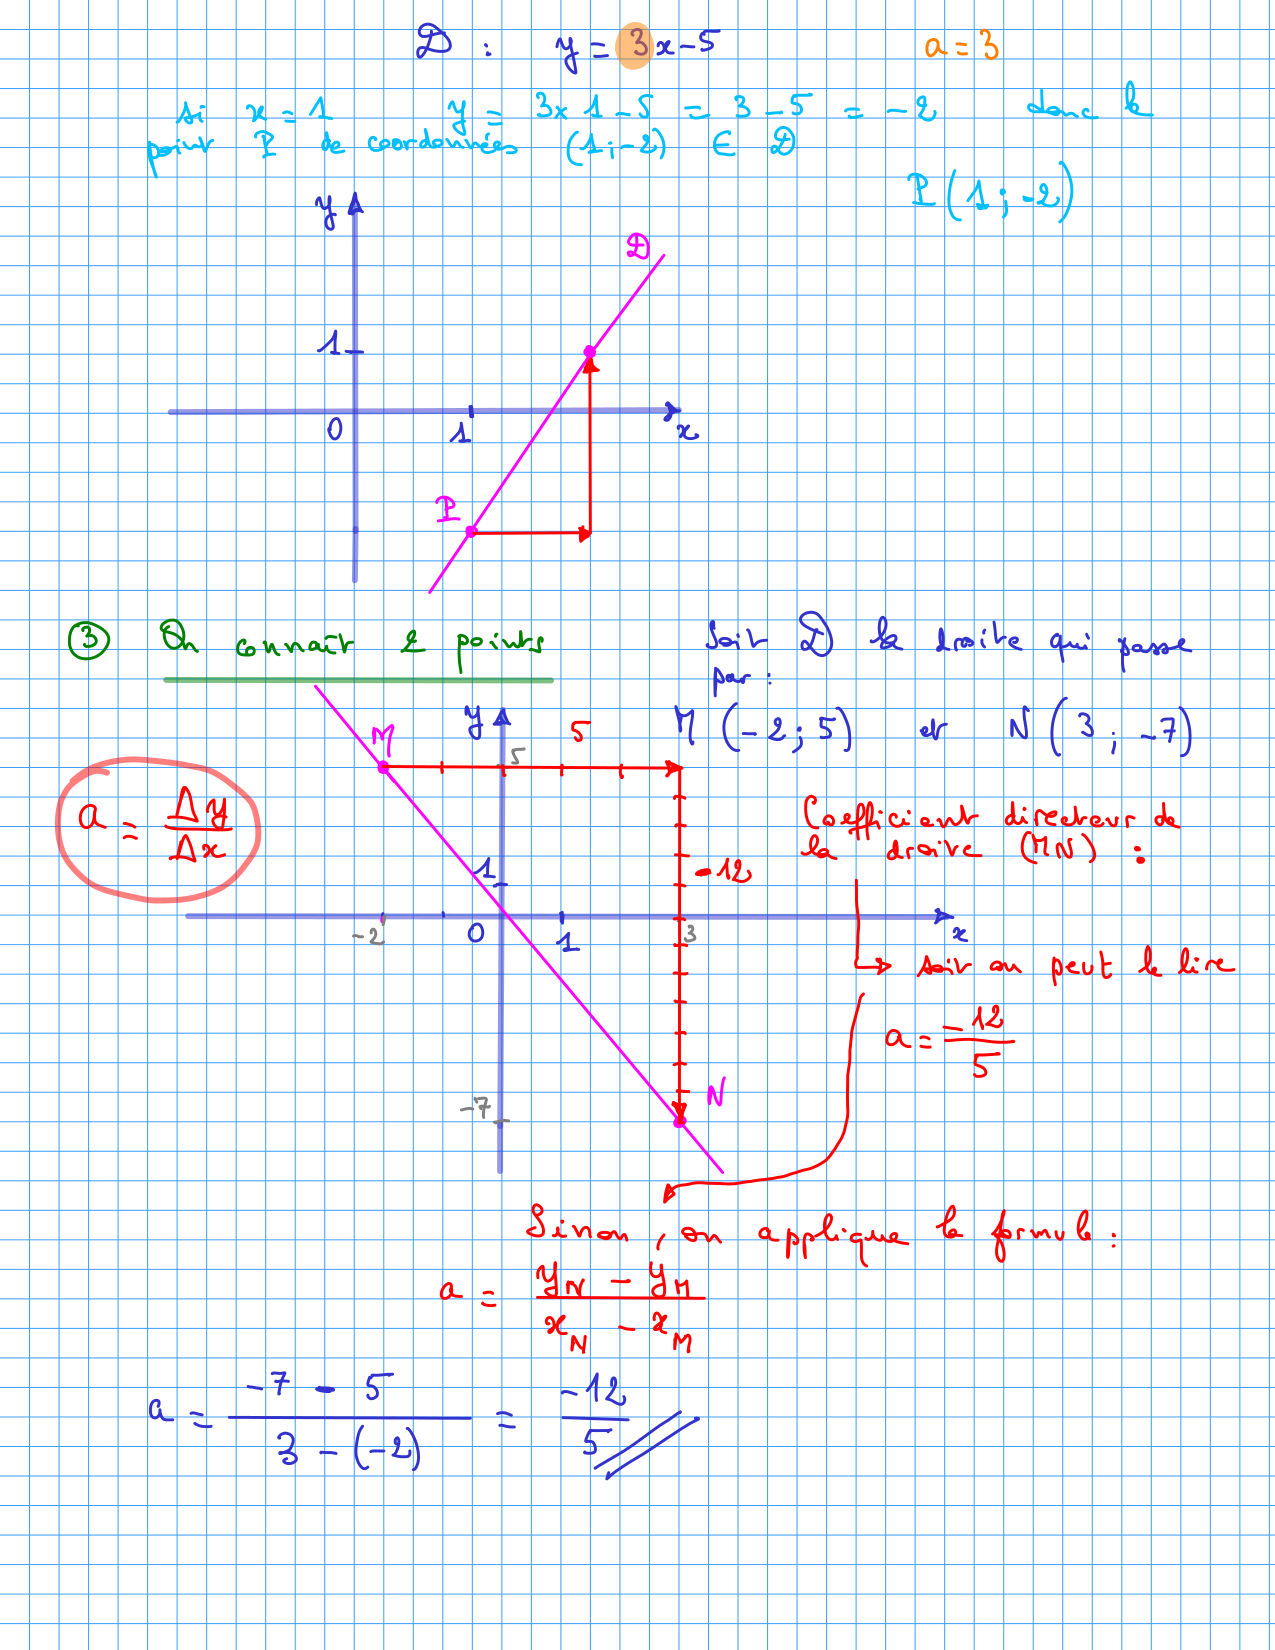 D : y = 3x - 5 a = 3
si x = 1 y = 3x 1 - 5 = 3 - 5 = - 2 donc le
point P de coordonnées (1 ; -2) ∈ D
P (1 ; -2)
y
D
1
0 1 x
P
③ On connaît 2 points
Soit D la droite qui passe
par :
M (-2 ; 5) et N (3 ; -7)
y
5
M
5
a = Δy / Δx
Coefficient directeur de
la droite (MN) :
1
-12
-2 0 1 3 x
soit on peut le lire
a = -12 / 5
-7
N
Sinon, on applique la formule :
a = yN - yM / xN - xM
a = -7 - 5 / 3 - (-2) = -12 / 5